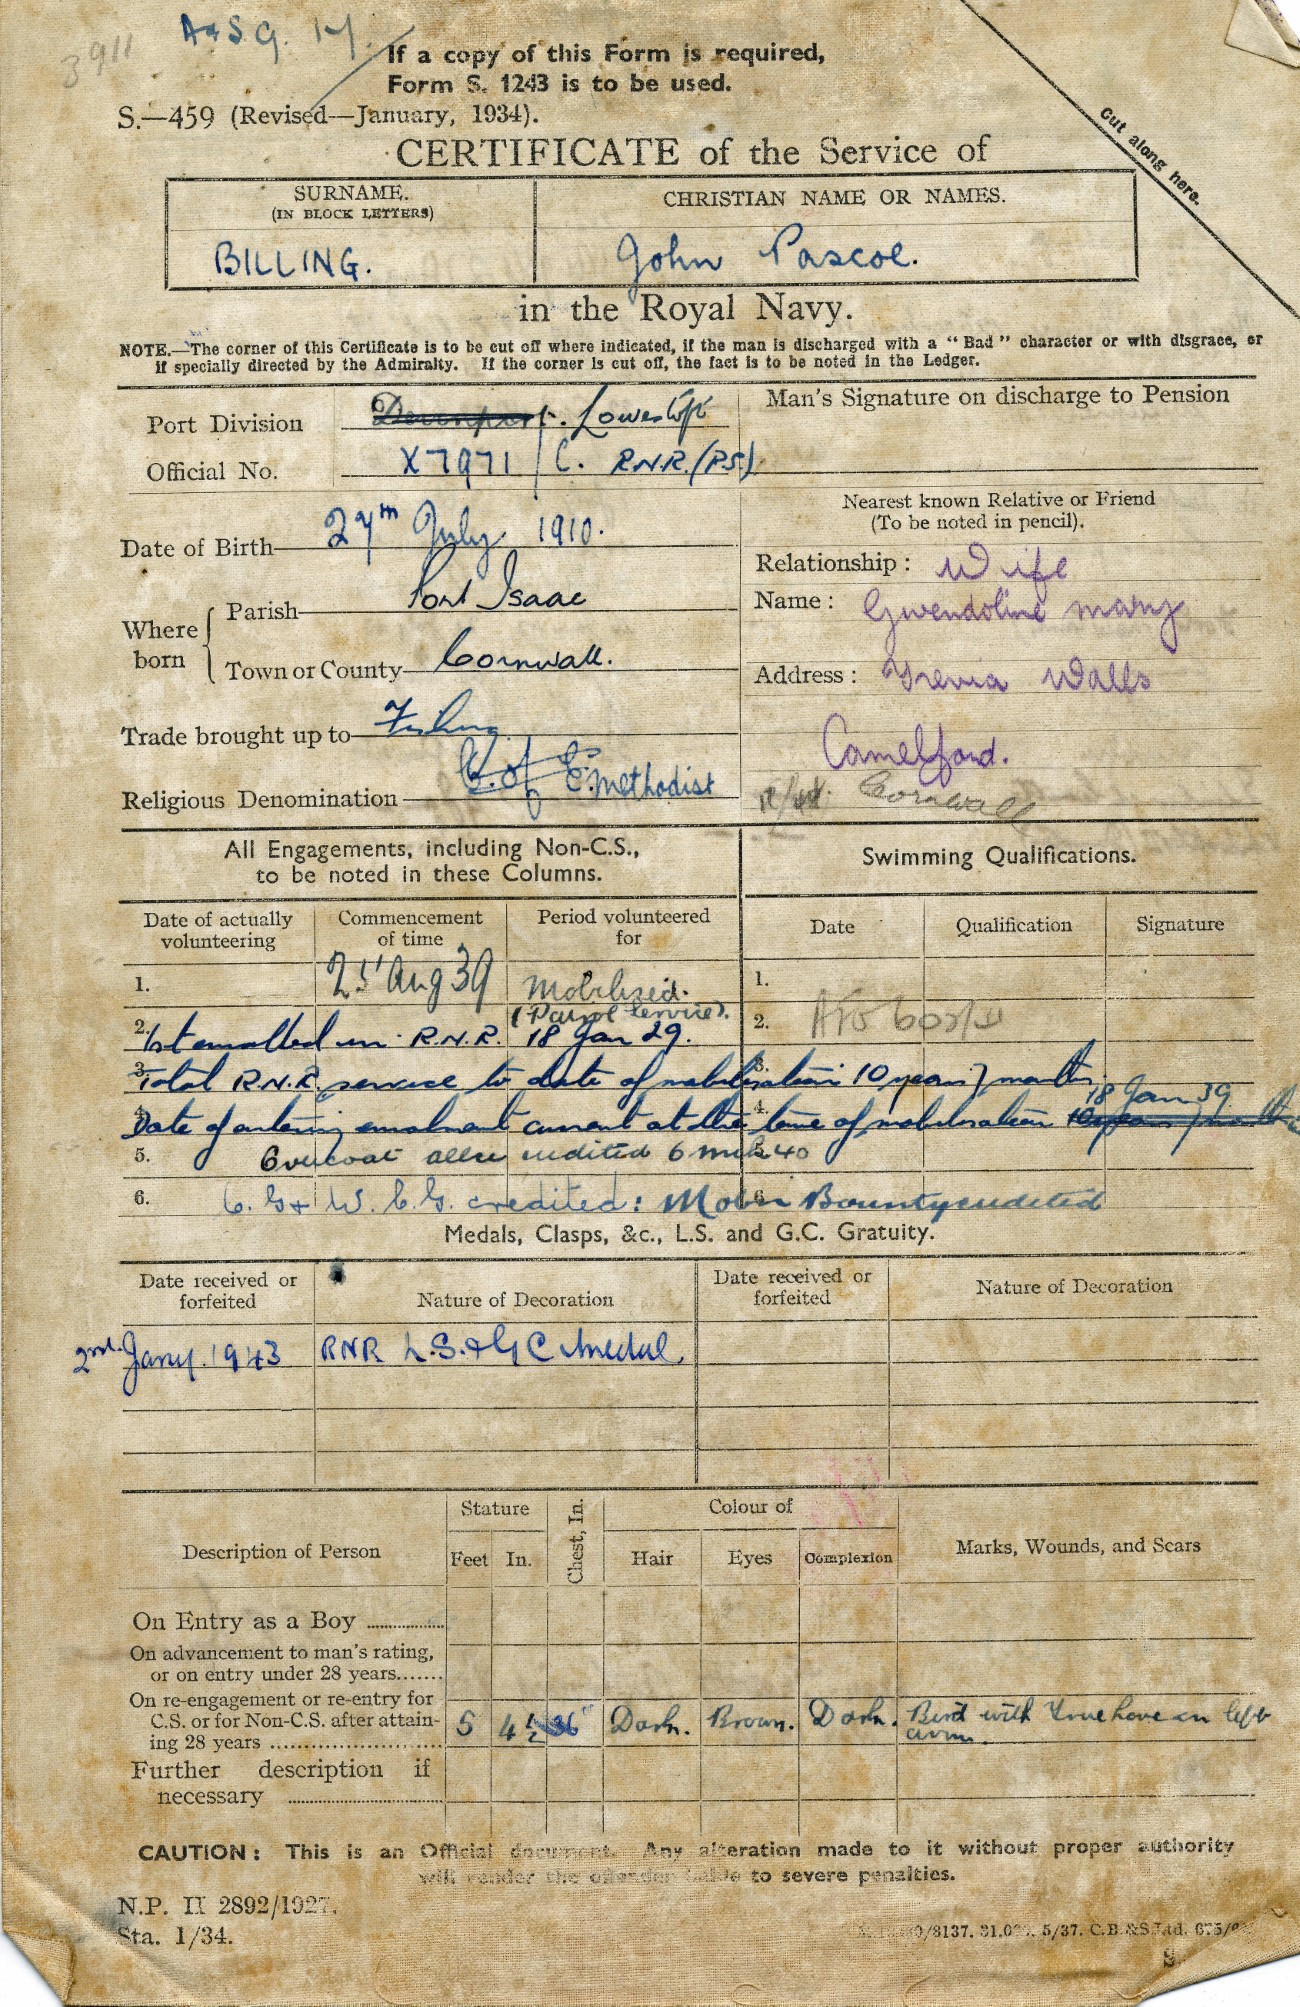 3911
A & S G. 17.
If a copy of this Form is required,
Form S. 1243 is to be used.
S.—459 (Revised—January, 1934).
Cut along here.
CERTIFICATE of the Service of
SURNAME. CHRISTIAN NAME OR NAMES.
(IN BLOCK LETTERS)
BILLING. John Pascoe.
in the Royal Navy.
NOTE.—The corner of this Certificate is to be cut off where indicated, if the man is discharged with a "Bad" character or with disgrace, or
if specially directed by the Admiralty. If the corner is cut off, the fact is to be noted in the Ledger.
Port Division Devonport. Lowestoft
Man's Signature on discharge to Pension
Official No. X7971/C. R.N.R.(P.S.)
Nearest known Relative or Friend
(To be noted in pencil).
Date of Birth 27th July 1910.
Relationship: Wife
Where born
Parish Port Isaac
Name: Gwendoline Mary
Town or County Cornwall.
Address: Trevia Walls
Trade brought up to Fishing
Camelford.
Religious Denomination C. of E. Methodist
Cornwall
All Engagements, including Non-C.S.,
to be noted in these Columns.
Swimming Qualifications.
Date of actually volunteering
Commencement of time
Period volunteered for
Date Qualification Signature
1. 25 Aug 39 Mobilized. 1.
(Patrol Service).
2. 1st enrolled in R.N.R. 18 Jan 29. 2. AFO
3. Total R.N.R. service to date of mobilisation 10 years 7 months 3.
18 Jan 39
4. Date of entering enrolment current at the time of mobilisation 10 years 7 months 4.
5. Overcoat allce credited 6 Mch 40 5.
6. C.G & W.C.G. credited: Mobn Bounty credited 6.
Medals, Clasps, &c., L.S. and G.C. Gratuity.
Date received or forfeited
Nature of Decoration
Date received or forfeited
Nature of Decoration
2nd Jany. 1943 RNR L.S. & G C Medal.
Description of Person
Stature
Feet In.
Chest, In.
Colour of
Hair Eyes Complexion
Marks, Wounds, and Scars
On Entry as a Boy
On advancement to man's rating,
or on entry under 28 years
On re-engagement or re-entry for
C.S. or for Non-C.S. after attain-
ing 28 years 5 4½ 36" Dark. Brown. Dark. Bird with True love on left
arm.
Further description if
necessary
CAUTION: This is an Official document. Any alteration made to it without proper authority
will render the offender liable to severe penalties.
N.P. II 2892/1927.
Sta. 1/34.
/8137. 5/37. C.B.&S.Ltd.